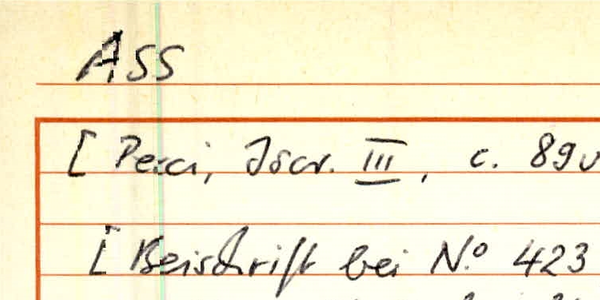 ASS
[ Pecci, Iscr. III, c. 89v
[ Beischrift bei N.o 423